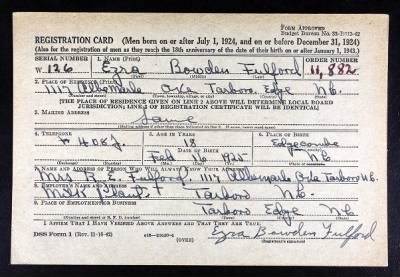 FORM APPROVED
REGISTRATION CARD—(Men born on or after July 1, 1924, and on or before December 31, 1924)
(Also for the registration of men as they reach the 18th anniversary of the date of their birth on or after January 1, 1943.)
SERIAL NUMBER 1. NAME (Print) ORDER NUMBER
W 126 Ezra Bowden Fulford 11,882
(First) (Middle) (Last)
2. PLACE OF RESIDENCE (Print)
1117 Albemarle Ave Tarboro Edge N.C.
[THE PLACE OF RESIDENCE GIVEN ON LINE 2 ABOVE WILL DETERMINE LOCAL BOARD
JURISDICTION; LINE 2 OF REGISTRATION CERTIFICATE WILL BE IDENTICAL]
3. MAILING ADDRESS
Same
4. TELEPHONE 5. AGE IN YEARS 6. PLACE OF BIRTH
18 Edgecombe
DATE OF BIRTH
Feb 16 N.C.
7. NAME AND ADDRESS OF PERSON WHO WILL ALWAYS KNOW YOUR ADDRESS
Mrs R. E. Fulford, 1117 Albemarle Ave Tarboro N.C.
8. EMPLOYER'S NAME AND ADDRESS
Tarboro N.C.
9. PLACE OF EMPLOYMENT OR BUSINESS
Tarboro Edge N.C.
I AFFIRM THAT I HAVE VERIFIED ABOVE ANSWERS AND THAT THEY ARE TRUE.
DSS Form 1 (Rev. 11-16-42) (OVER) Ezra Bowden Fulford
(Registrant's signature)